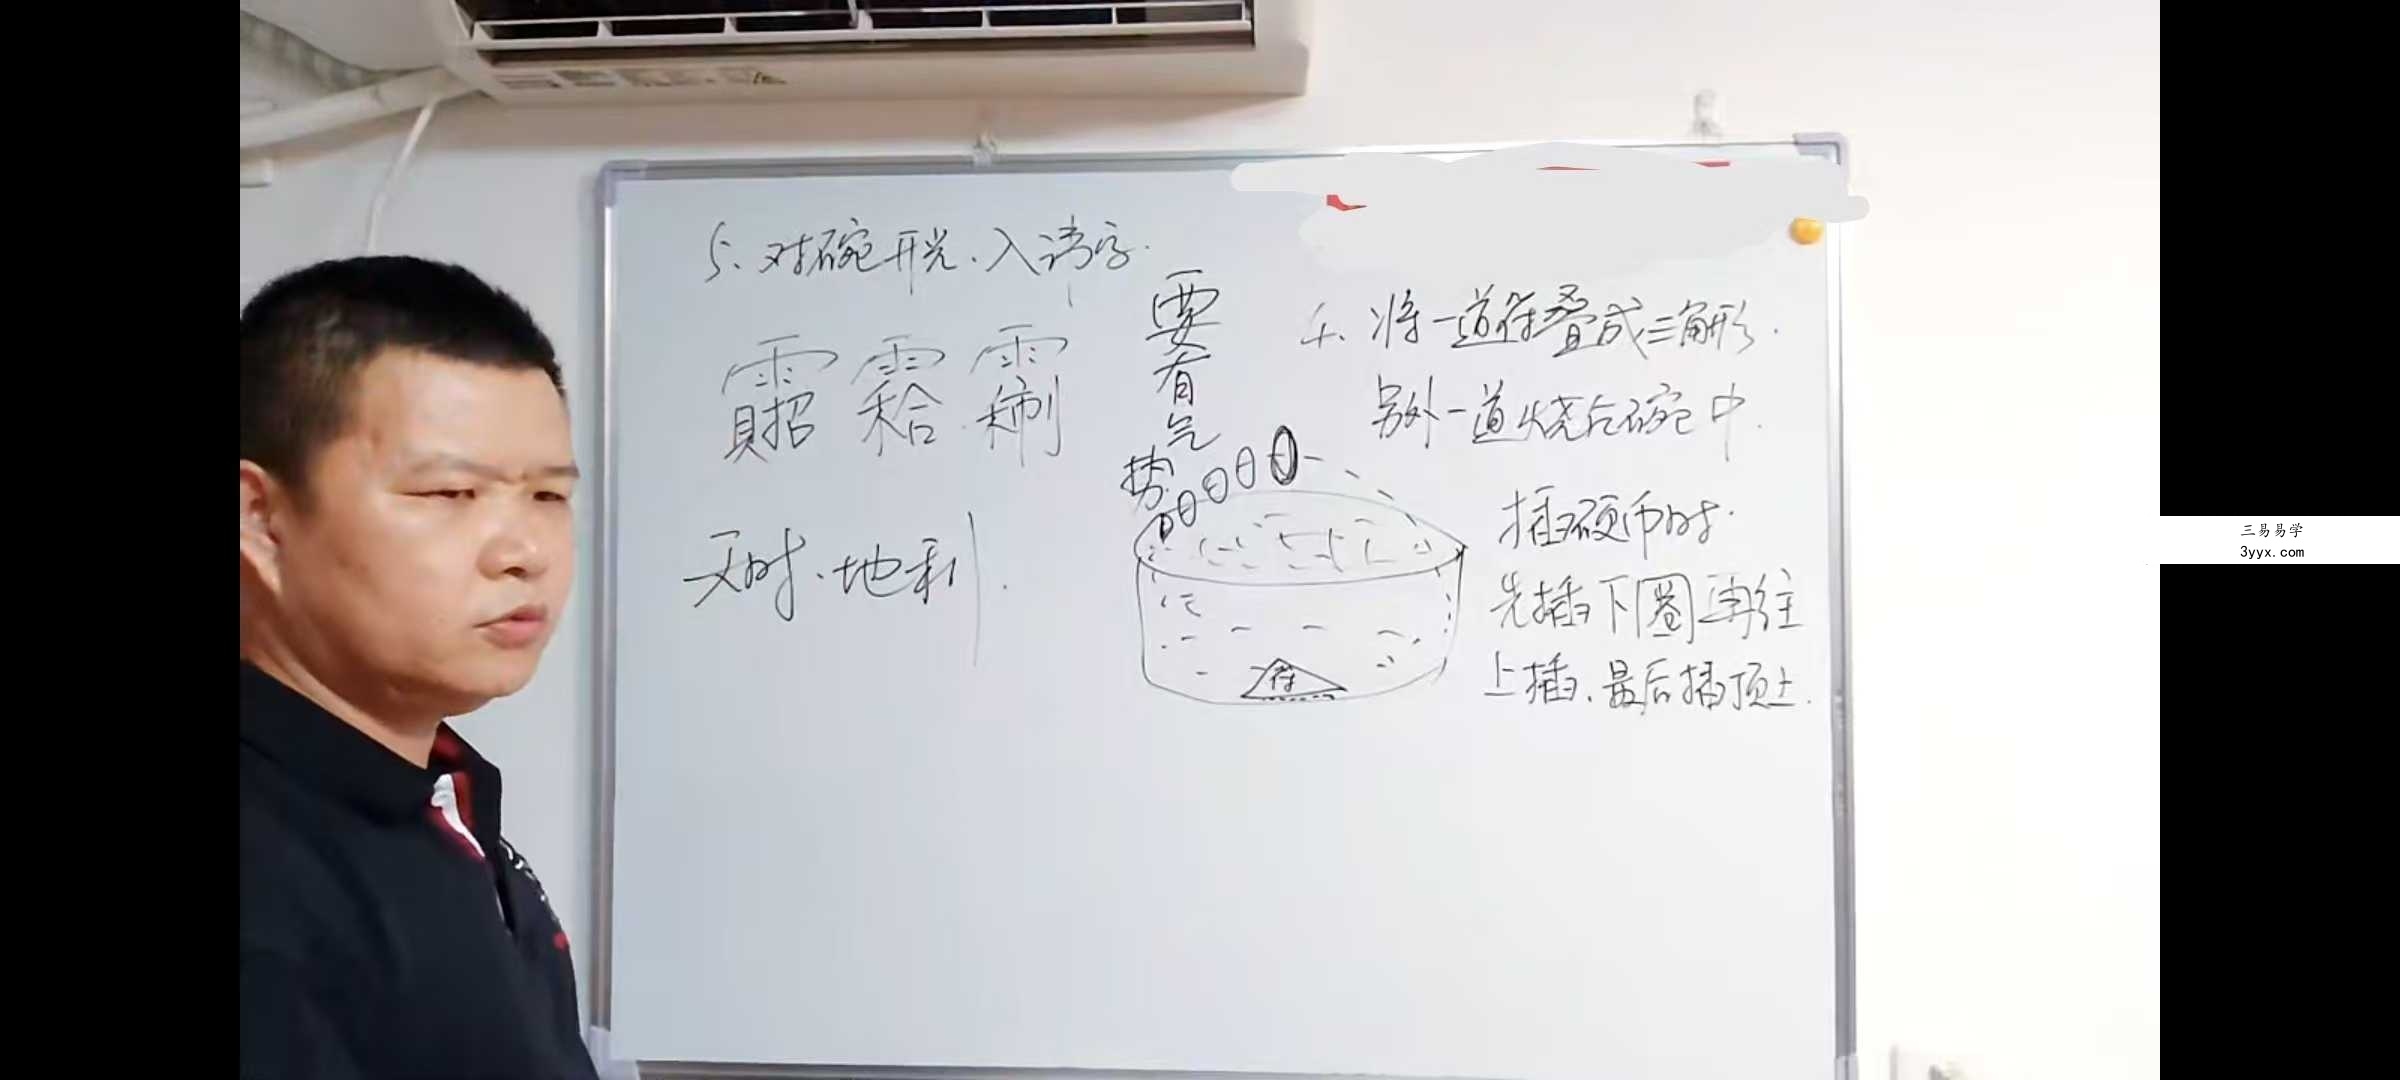 5、对碗开光、入讳字.
天时、地利.
要有气势
4、将一道符叠成三角形.
另外一道烧后碗中.
符
插硬币时.
先插下圈再往
上插、最后插顶上.
三易易学
3yyx.com